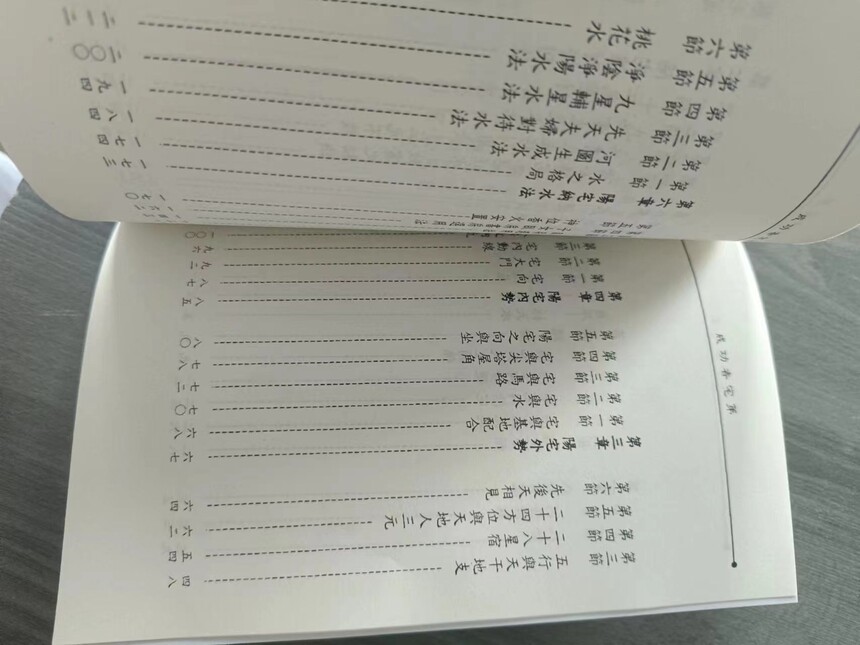 成功看宅第
第三節 五行與天干地支 四八
第四節 二十八星宿 五四
第五節 二十四方位與天地人三元 六二
第六節 先後天相見 六四
第三章 陽宅外勢 六七
第一節 宅與基地配合 六八
第二節 宅與水 七〇
第三節 宅與馬路 七二
第四節 宅與尖塔屋角 七八
第五節 陽宅之向與坐 八〇
第四章 陽宅內勢 八五
第一節 宅向 八七
第二節 宅大門 九二
第三節 宅內動線 九六
神位香火安置
第六章 陽宅納水法 一七〇
第一節 水之格局 一七三
第二節 河圖生成水法 一七四
第三節 先天夫婦對待水法 一八四
第四節 九星輔星水法 一九四
第五節 淨陰淨陽水法 二〇〇
第六節 桃花水